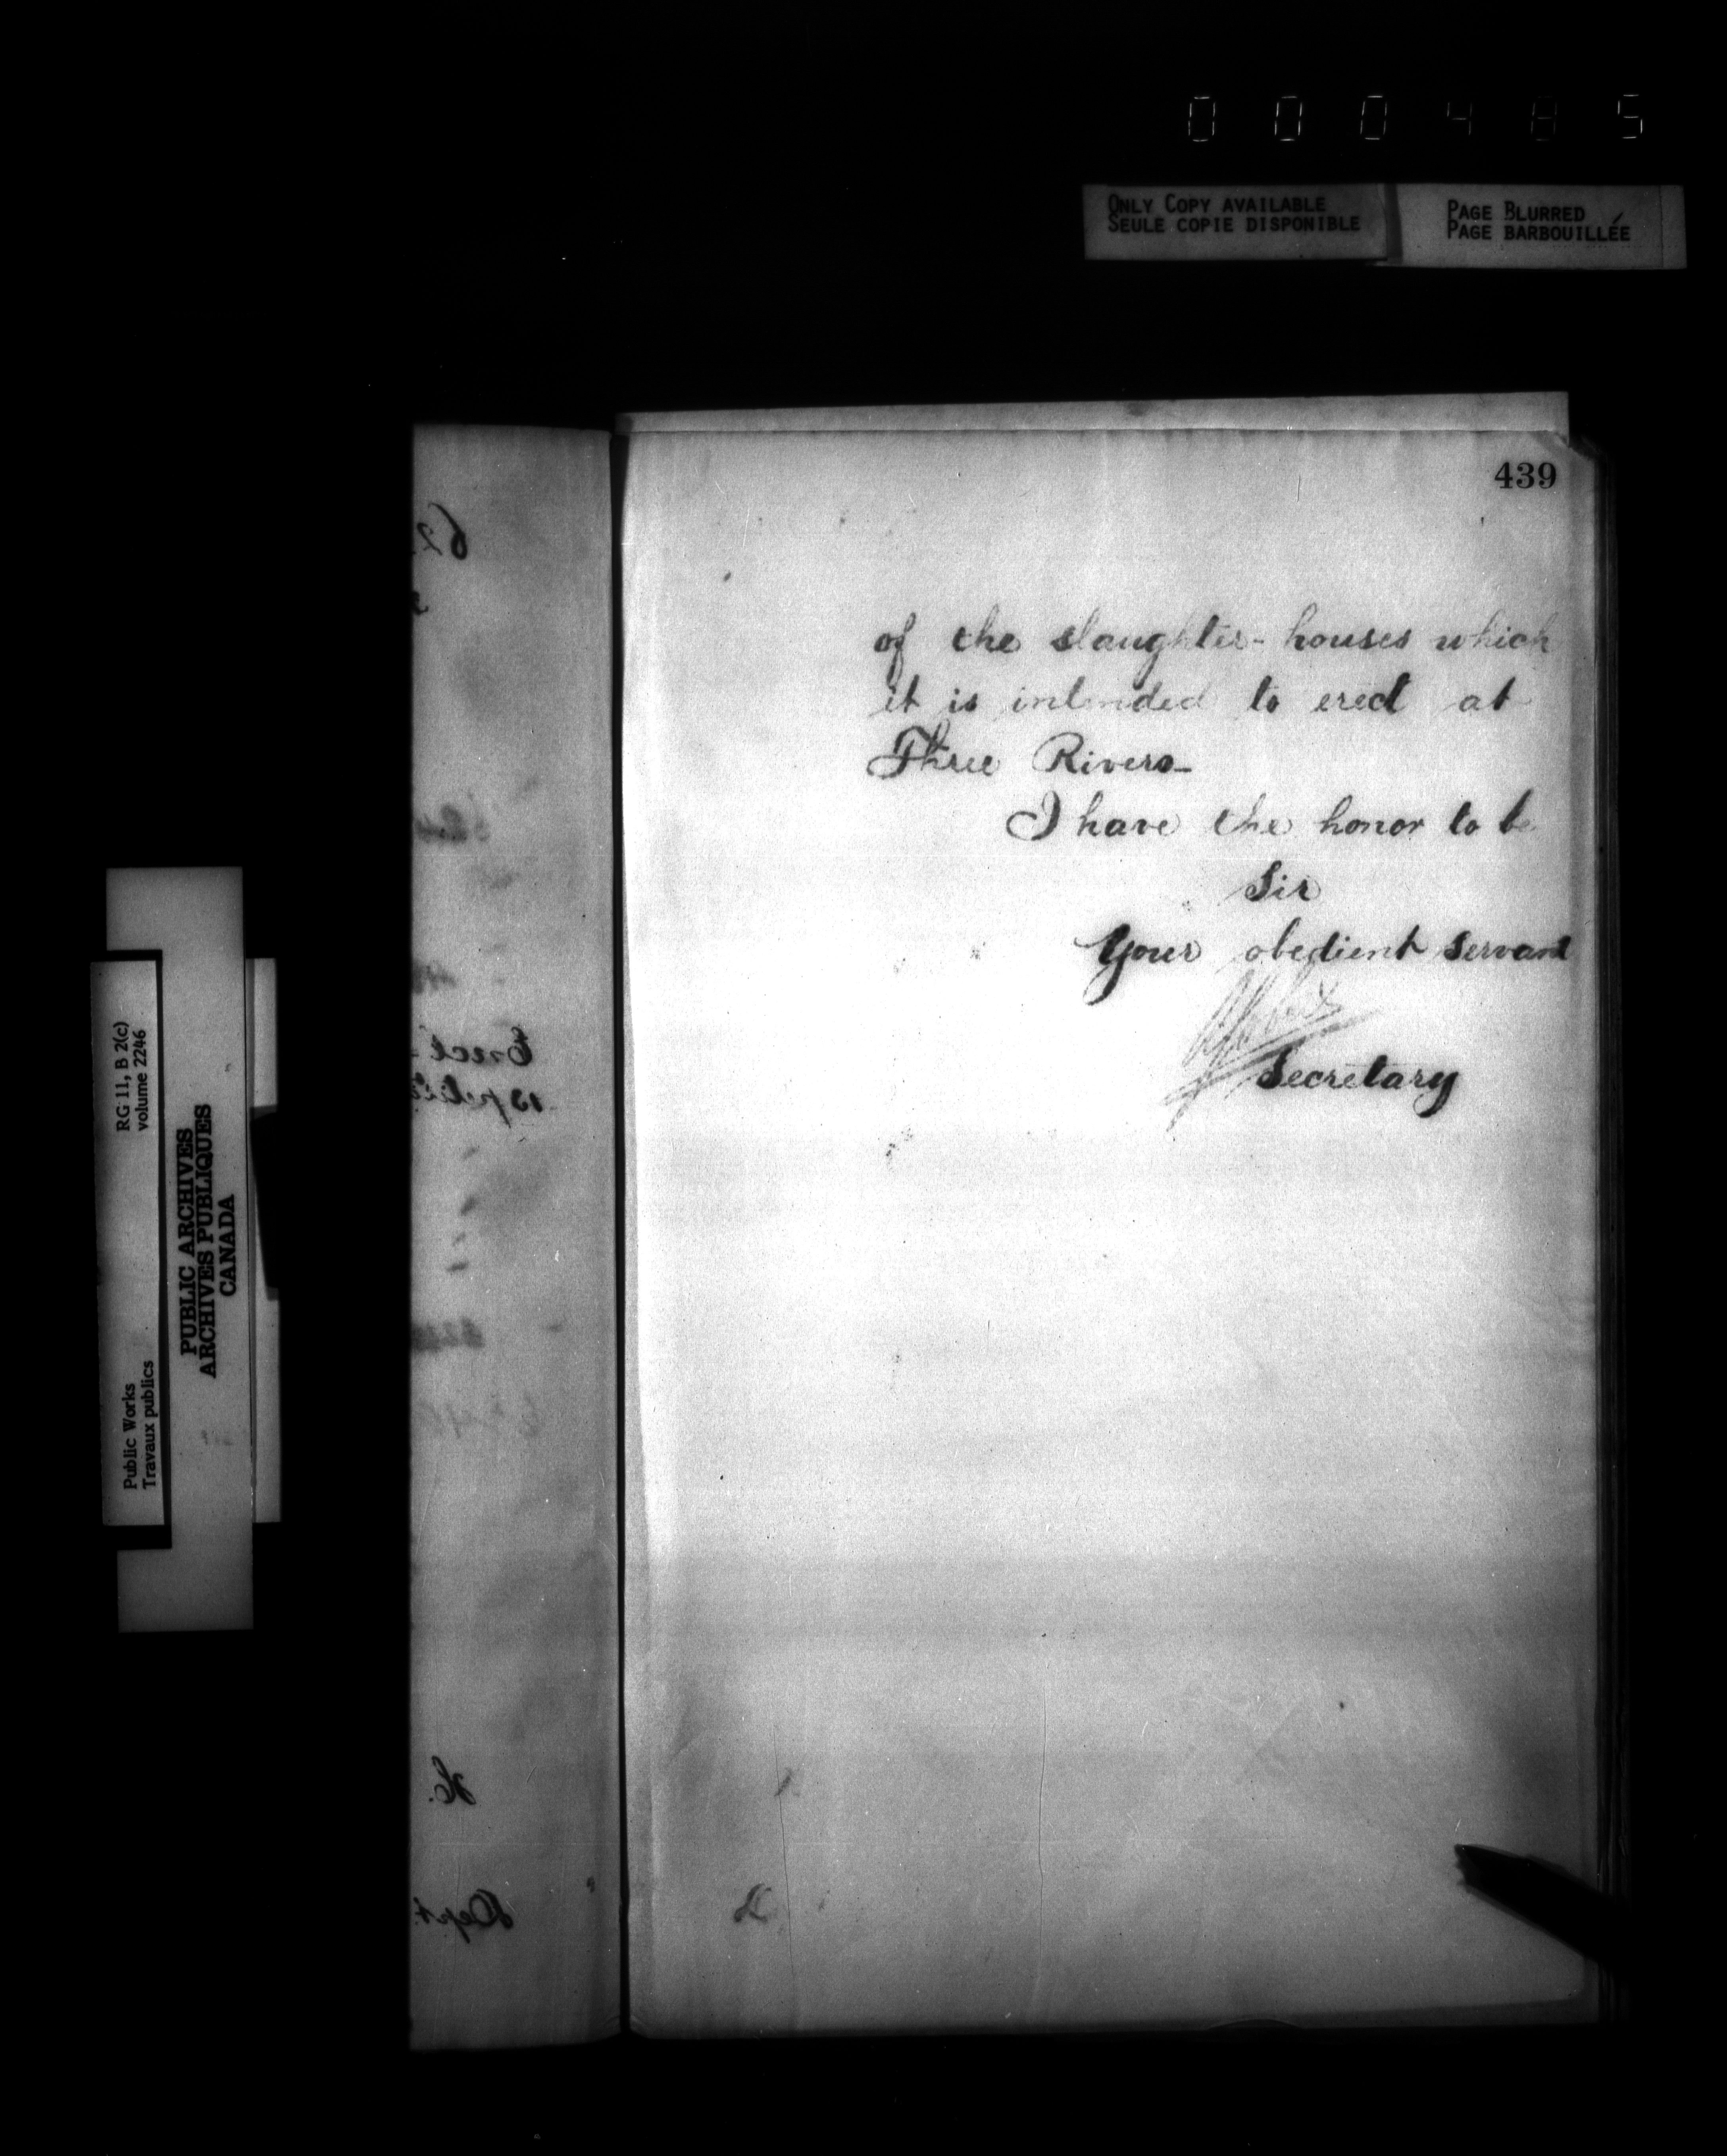 000485
ONLY COPY AVAILABLE
SEULE COPIE DISPONIBLE
PAGE BLURRED
PAGE BARBOUILLÉE
439
of the slaughter-houses which
it is intended to erect at
Three Rivers_
I have the honor to be
Sir
Your obedient servant
Secretary
RG 11, B 2(c)
volume 2246
Public Works
Travaux publics
PUBLIC ARCHIVES
ARCHIVES PUBLIQUES
CANADA
Dept.